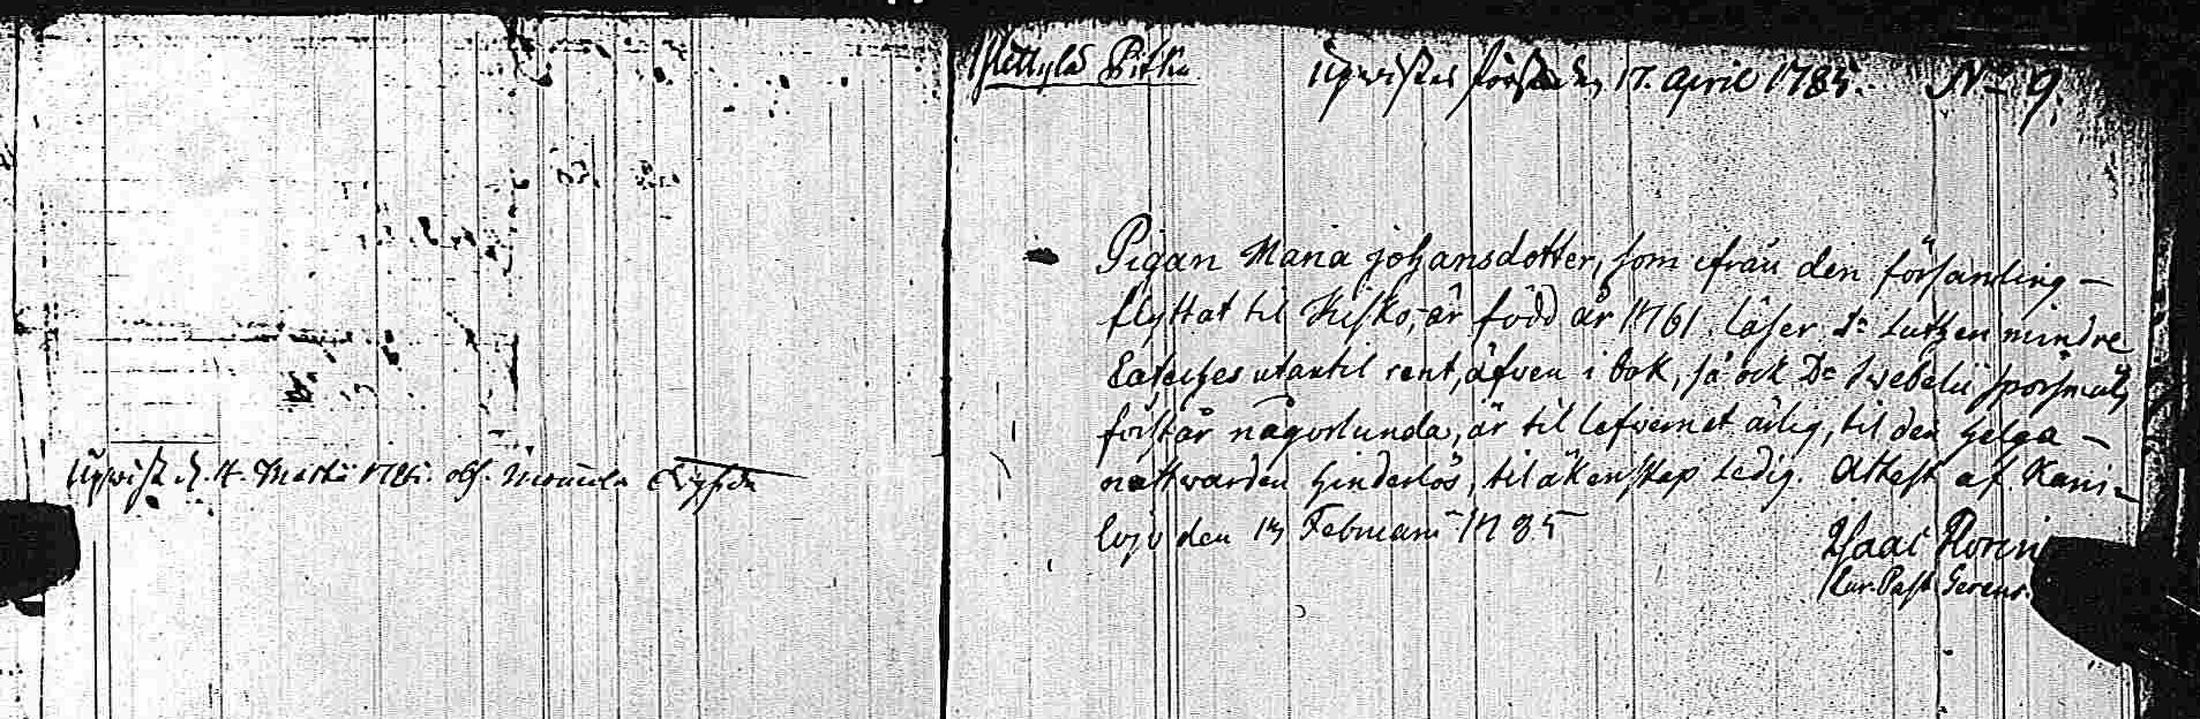 Upwist d. 4. Martii 1785. 
Pitku
Upwistes 17. April 1785. No 9.
Pigan Maria Johansdotter, som ifrån den församling
flyttat til Kisko, är född år 1761. läser Dr Luthers mindre
Cateches utantil rent, äfven i bok, så ock Dr Swebelii spörsmål,
förstår någorlunda, är til lefvernet ärlig, til den helga
nattwarden hinderlös, til äkenskap ledig. Attest af Karis-
lojo den Februarii 1785
Isaac Florin
Cur. Past. Gerens.